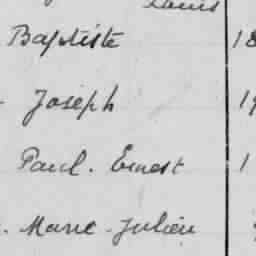 Louis
Baptiste 18
Joseph 19
Paul. Ernest 1
Marie-Julien